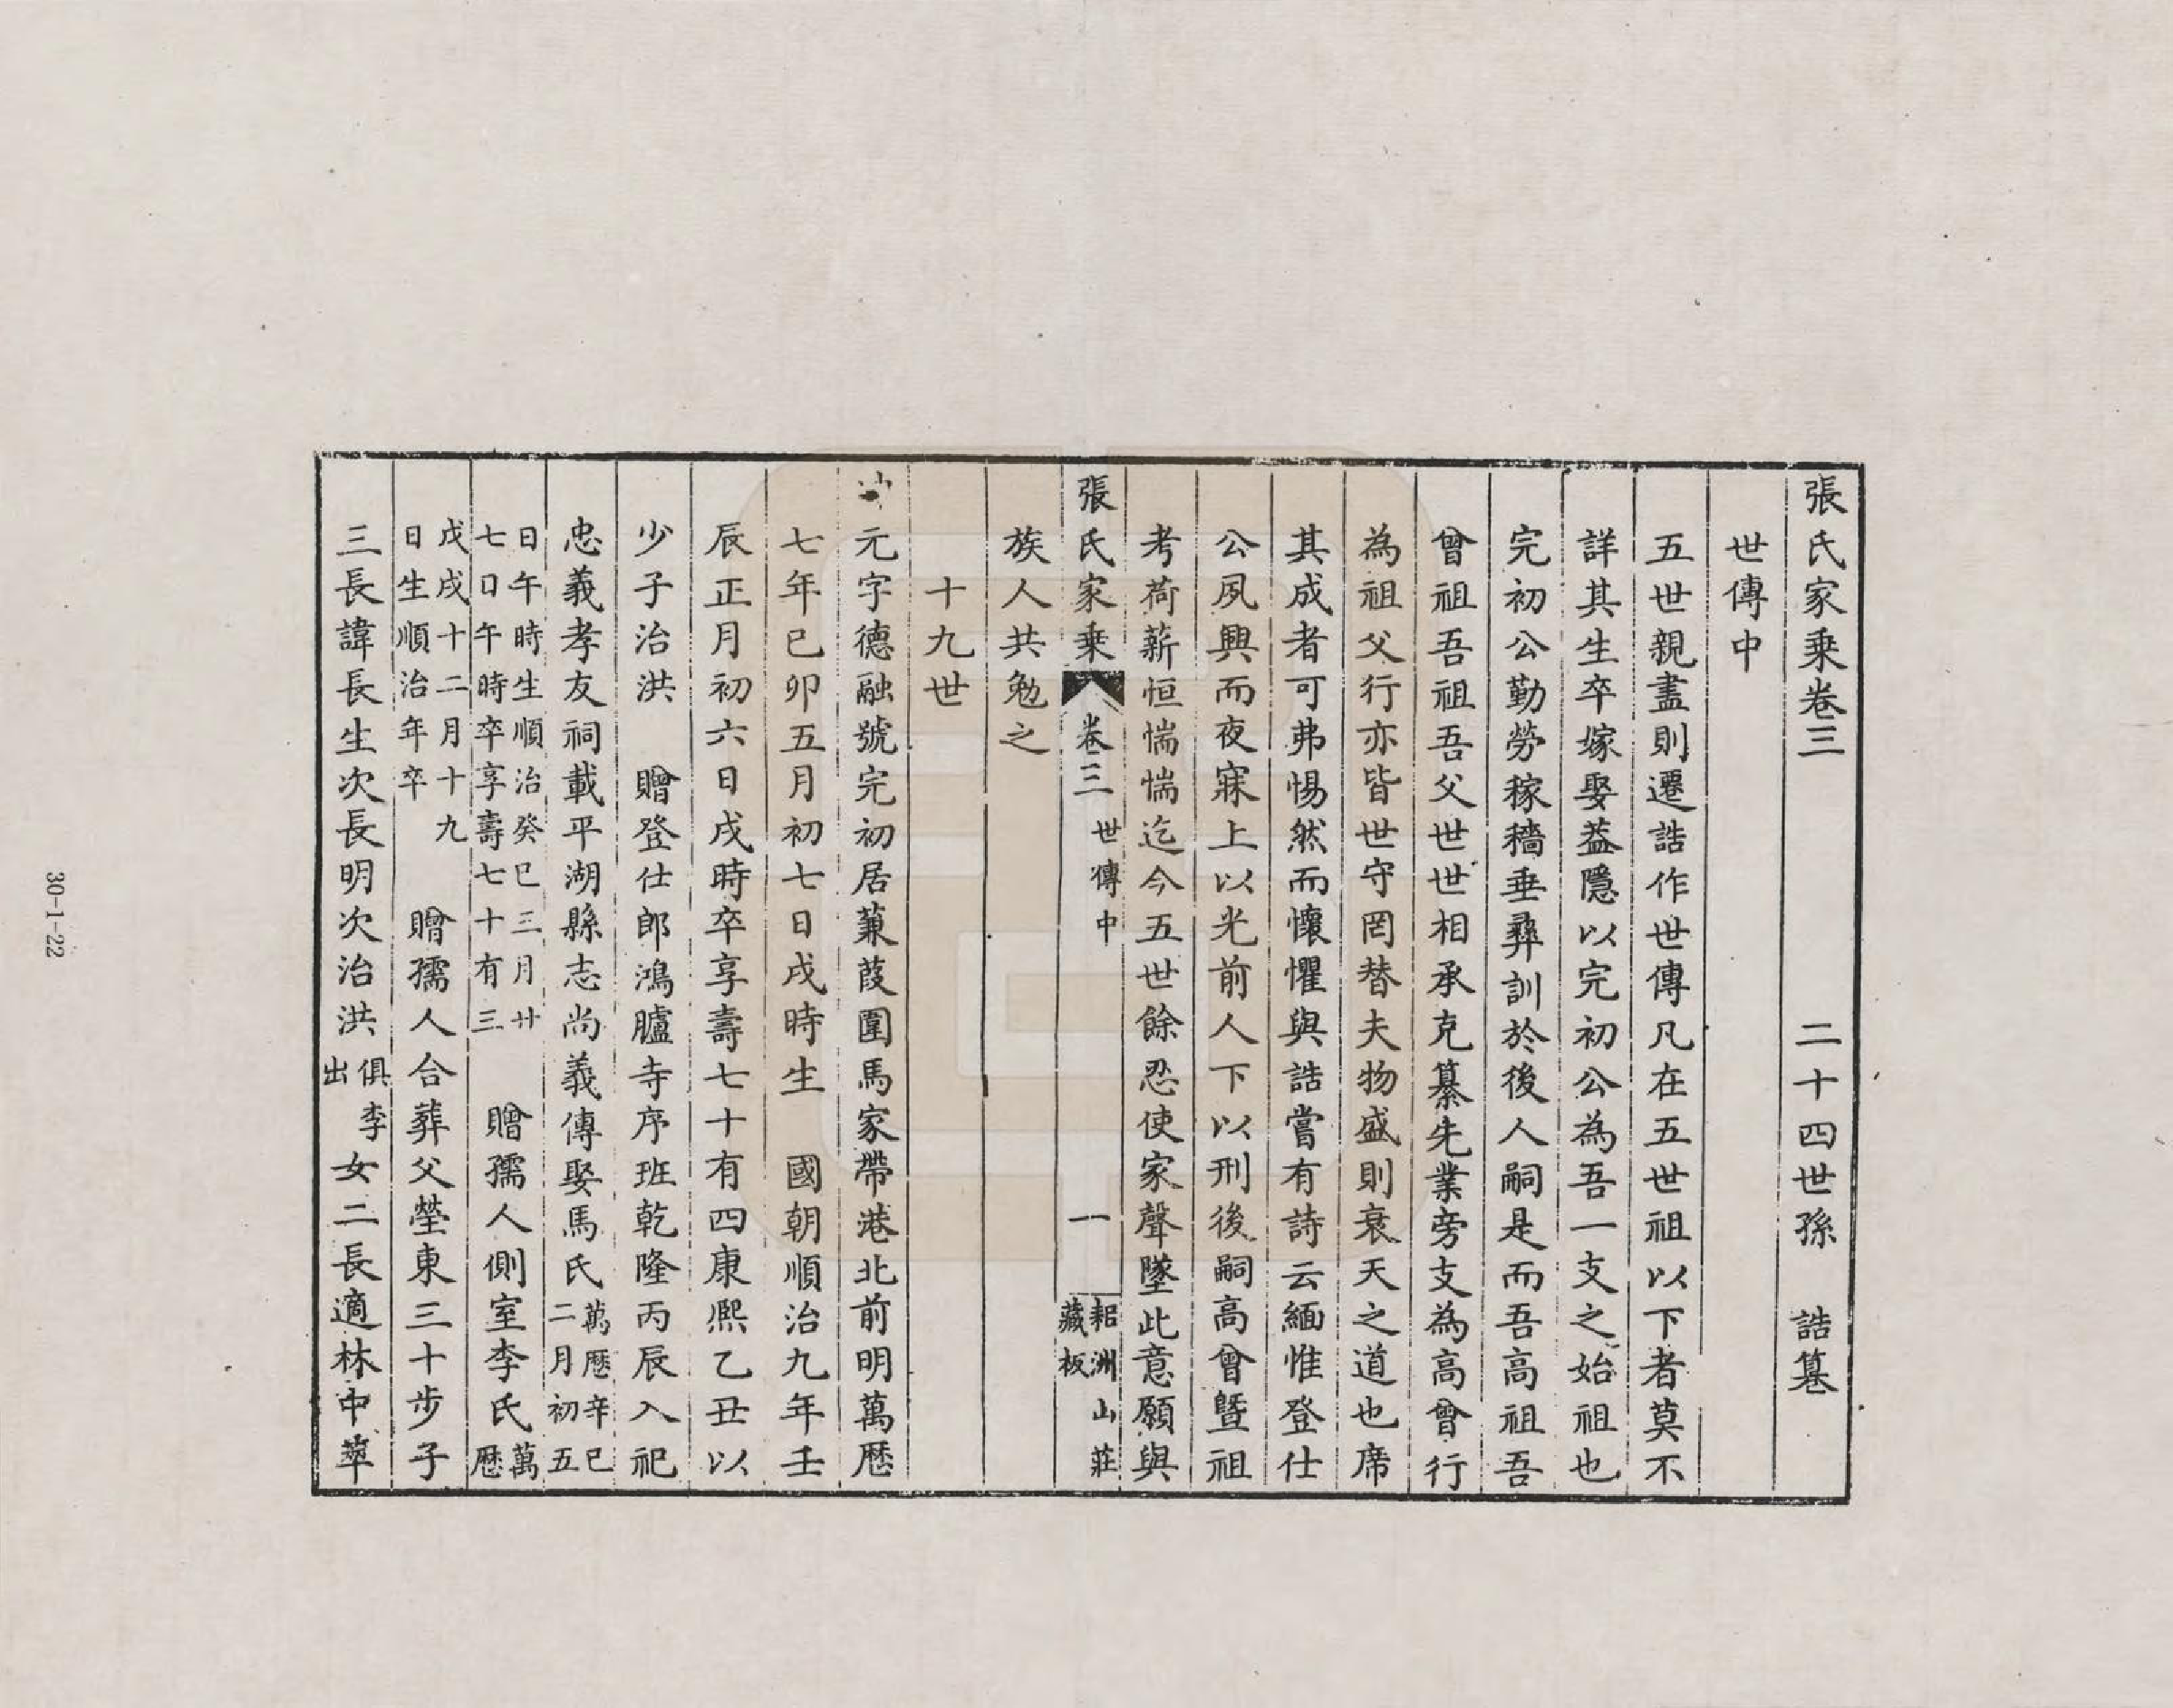 張氏家乘卷三　二十四世孫　誥篹
世傳中
五世親盡則遷誥作世傳凡在五世祖以下者莫不
詳其生卒嫁娶葢隱以完初公為吾一支之始祖也
完初公勤勞稼穡垂彝訓於後人嗣是而吾高祖吾
曾祖吾祖吾父世世相承克纂先業旁支為高曾行
為祖父行亦皆世守罔替夫物盛則衰天之道也席
其成者可弗惕然而懷懼與誥嘗有詩云緬惟登仕
公夙興而夜寐上以光前人下以刑後嗣高曾暨祖
考荷薪恒惴惴迄今五世餘忍使家聲墜此意願與
張氏家乘　卷三　世傳中　一　耜洲山莊藏板
族人共勉之
十九世
元字德融號完初居蒹葭圍馬家帶港北前明萬歷
七年己卯五月初七日戌時生　國朝順治九年壬
辰正月初六日戌時卒享壽七十有四康熙乙丑以
少子治洪　贈登仕郎鴻臚寺序班乾隆丙辰入祀
忠義孝友祠載平湖縣志尚義傳娶馬氏萬歷辛巳二月初五
日午時生順治癸巳三月廿七日午時卒享壽七十有三　贈孺人側室李氏萬歷
戊戌十二月十九日生順治年卒　贈孺人合葬父塋東三十步子
三長諱長生次長明次治洪俱李出女二長適林中萃
30-1-22